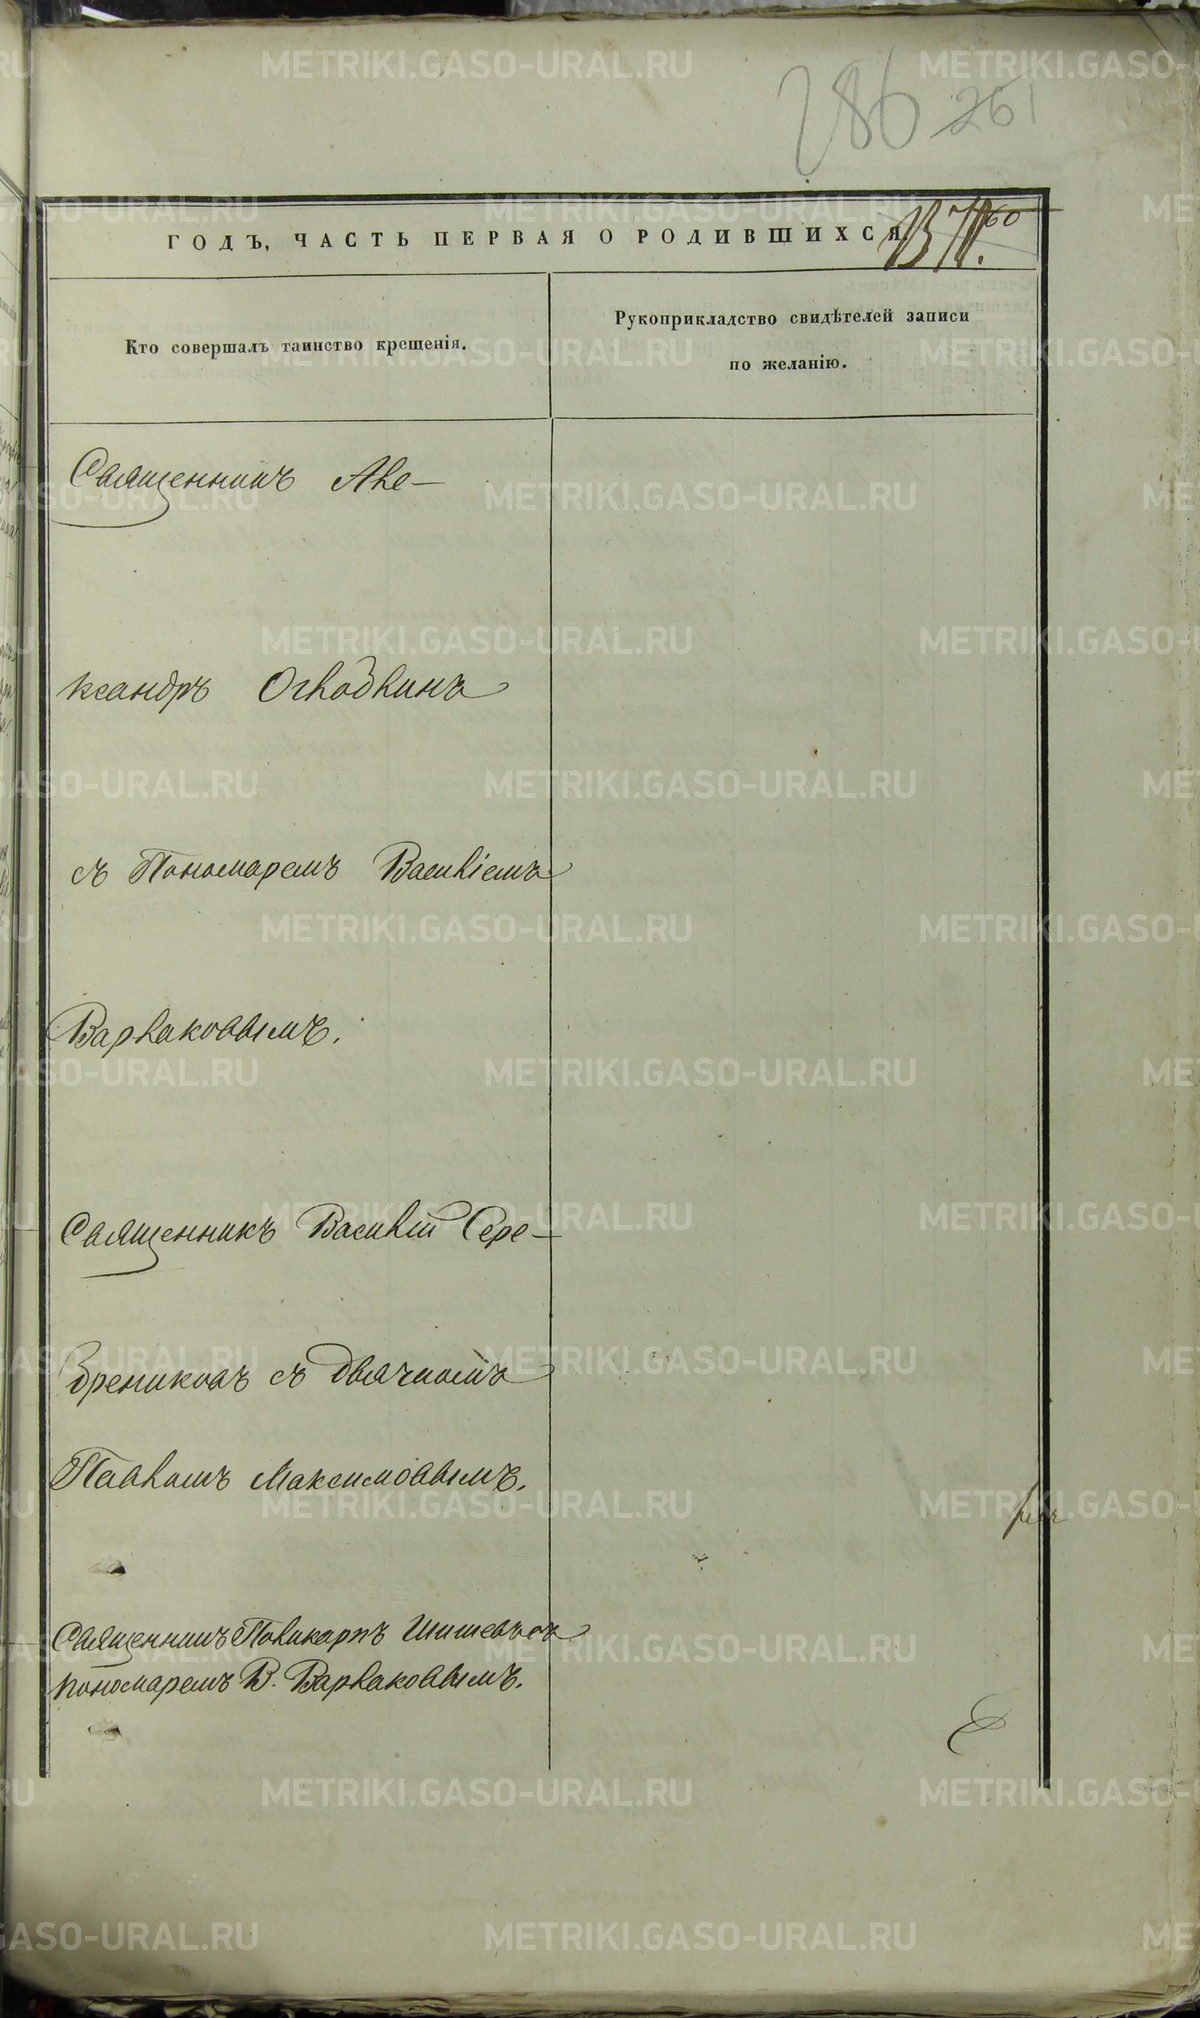 286 261
ГОДЪ, ЧАСТЬ ПЕРВАЯ О РОДИВШИХСЯ
Кто совершалъ таинство крещенія.
Рукоприкладство свидѣтелей записи
по желанію.
Священникъ Але–
ксандръ Оглодлинъ
съ Пономаремъ Василіемъ
Варлаковымъ.
Священникъ Василій Сере–
бренниковъ съ Дьячкомъ
Павломъ Максимовымъ.
Священникъ Поликарпъ Шишевъ съ
пономаремъ В. Варлаковымъ.
METRIKI.GASO-URAL.RU